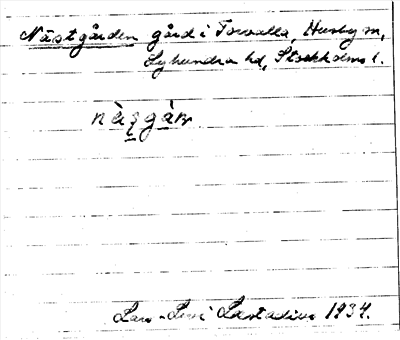 Nästgården gård i Torvalla, Husby sn,
Lyhundra hd, Stockholms l.
Lars-Levi Læstadius 1934.